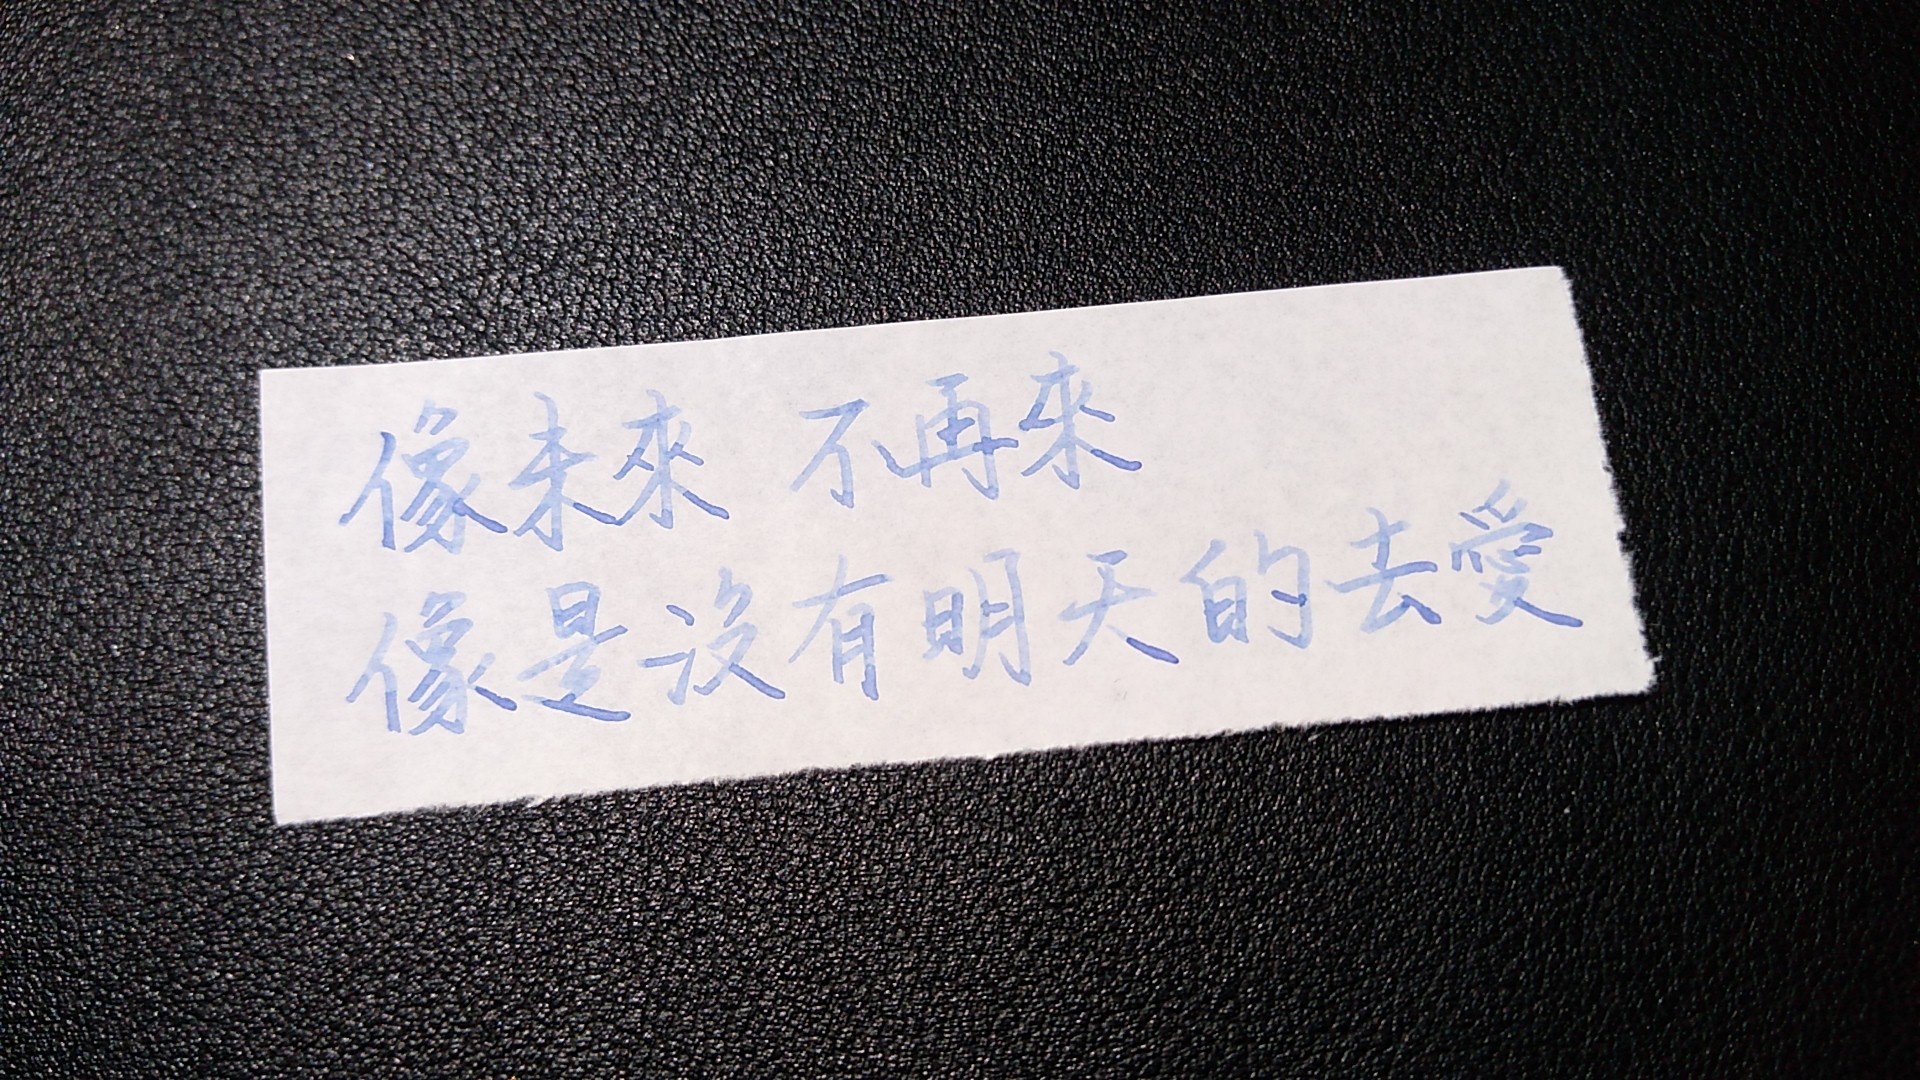 像未來 不再來
像是沒有明天的去愛